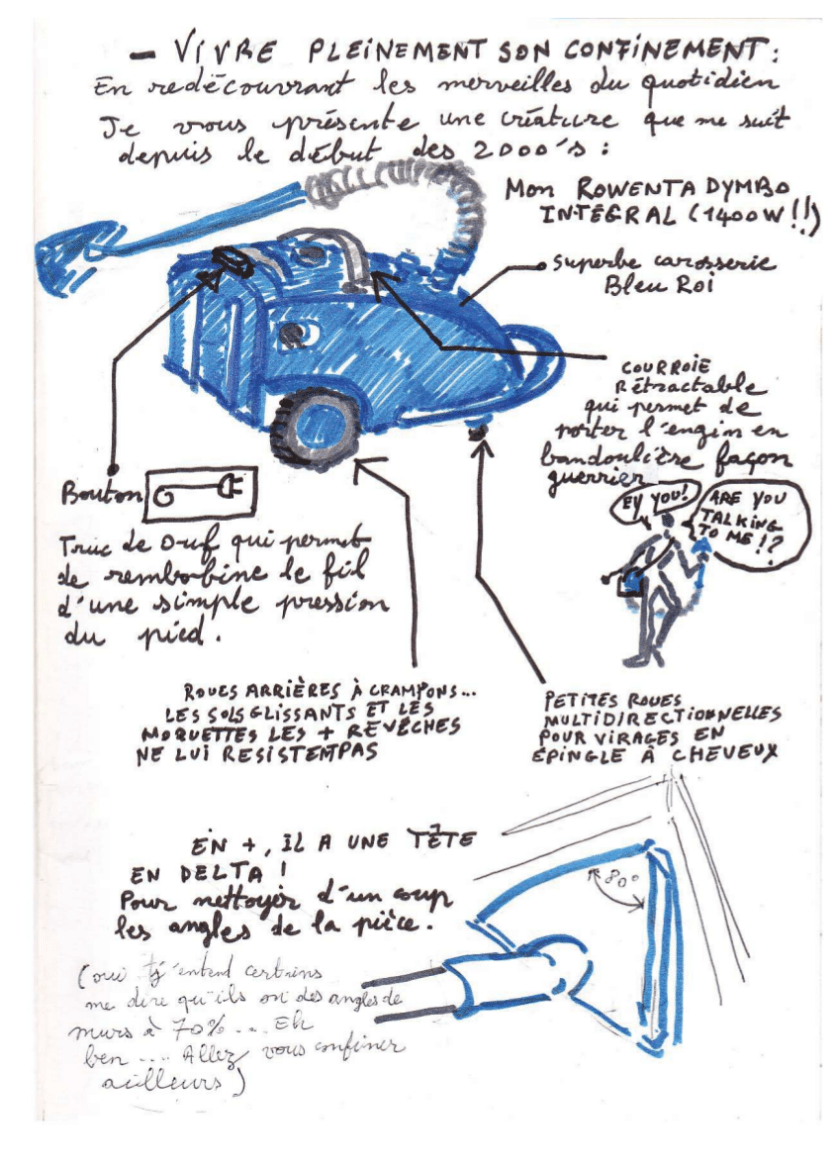 - VIVRE PLEINEMENT SON CONFINEMENT:
En redécouvrant les merveilles du quotidien
Je vous présente une créature que me suit
depuis le début des 2000's :
Mon ROWENTA DYMBO
INTÉGRAL (1400W!!)
Superbe carosserie
Bleu Roi
COURROIE
Rétractable
qui permet de
porter l'engin en
bandoulière façon
guerrier
EY YOU!
ARE YOU
TALKING
TO ME !?
Bouton
Truc de ouf qui permet
de rembobine le fil
d'une simple pression
du pied.
ROUES ARRIÈRES À CRAMPONS...
LES SOLS GLISSANTS ET LES
MOQUETTES LES + REVÊCHES
NE LUI RESISTEMPAS
PETITES ROUES
MULTIDIRECTIONNELLES
POUR VIRAGES EN
ÉPINGLE À CHEVEUX
EN +, IL A UNE TÊTE
EN DELTA !
Pour nettoyer d'un coup
les angles de la pièce.
80°
(oui j'entend certains
me dire qu'ils on des angles de
murs à 70% ... Eh
ben .... Allez vous confiner
ailleurs)